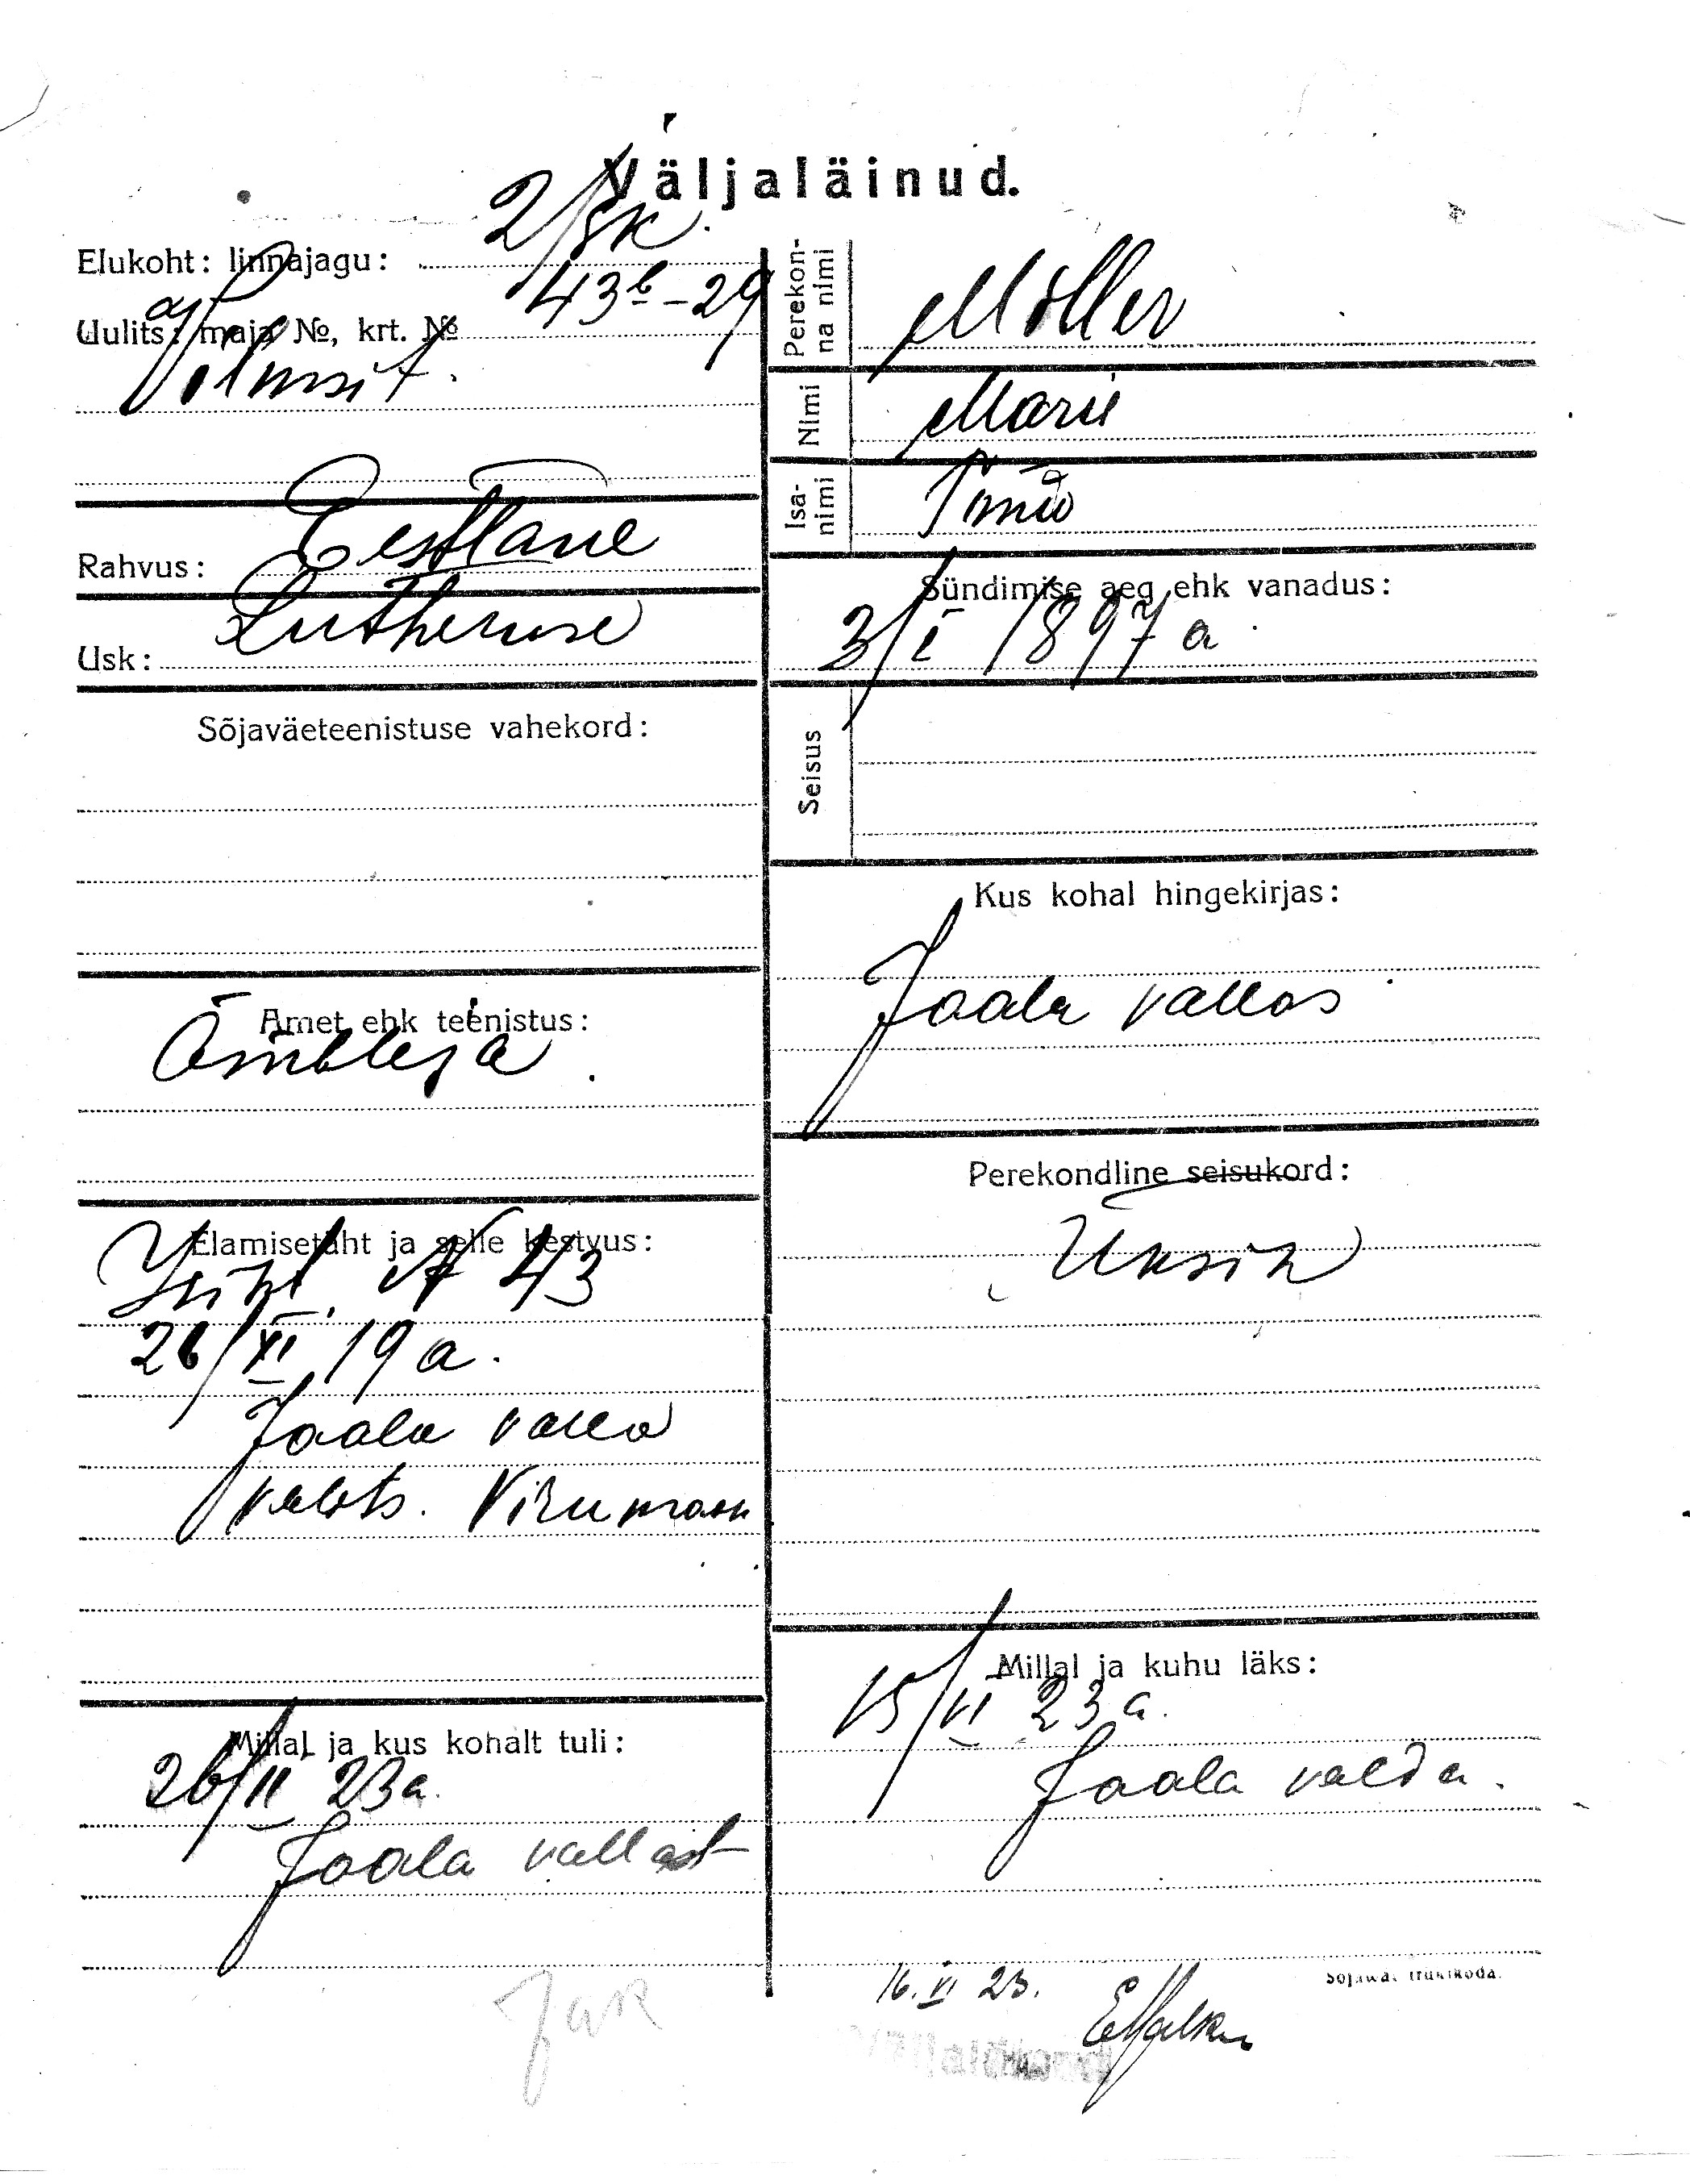 Väljaläinud.
Elukoht: linnajagu: 2/jk.
Uulits: maja №, krt. № 43b-29
Rahvus: Eestlane
Usk: Lutheruse
Sõjaväeteenistuse vahekord:
Amet ehk teenistus:
Õmbleja.
Elamisetäht ja selle kestvus:
№ 43
26/XI 19 a.
Joala valla
valits. Virumaa
Millal ja kus kohalt tuli:
26/II 23 a.
Joala vallast
Perekonna nimi Möller
Nimi Marie
Isanimi Tõnu
Sündimise aeg ehk vanadus:
3/I 1897 a.
Seisus
Kus kohal hingekirjas:
Joala vallas
Perekondline seisukord:
Üksik
Millal ja kuhu läks:
15/VI 23 a.
Joala valda.
Sojawäe trükikoda.
16.VI 23.